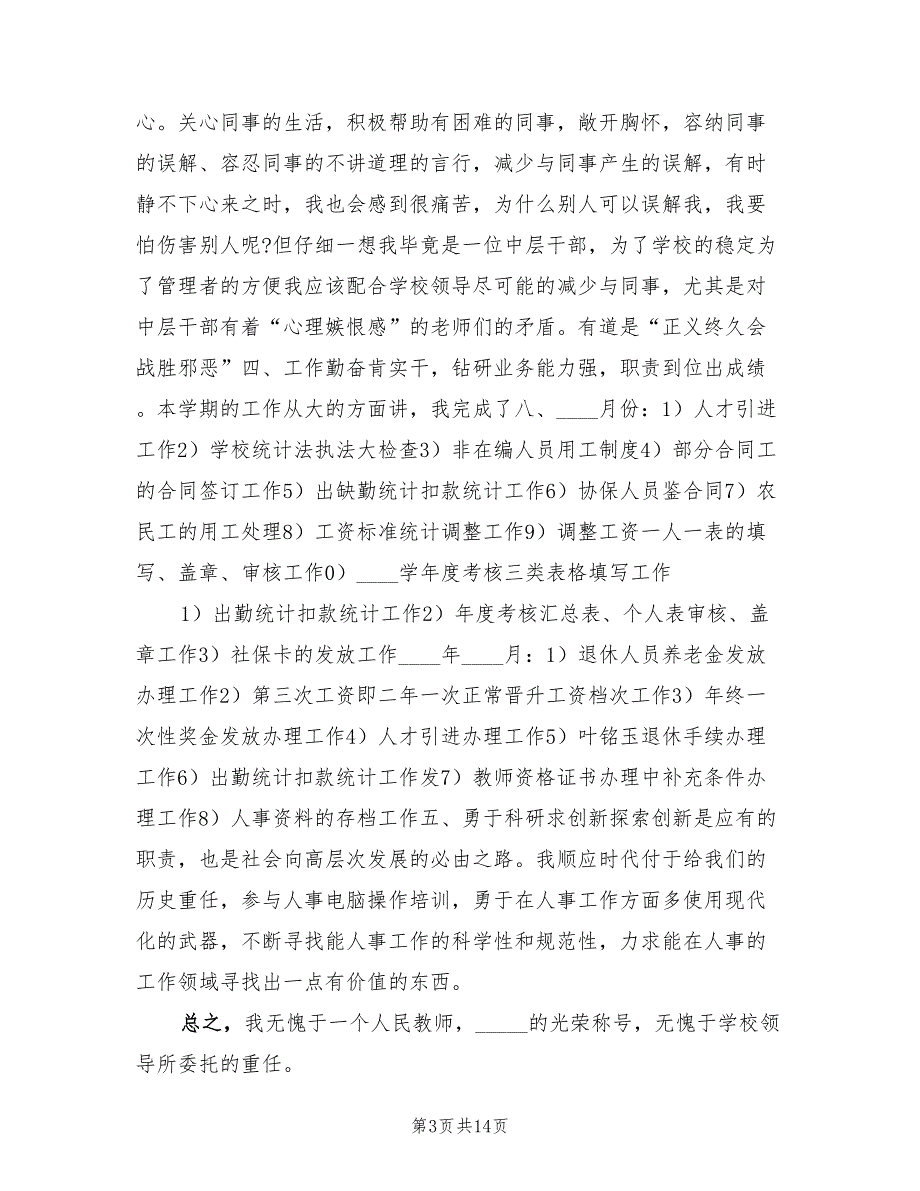 心。关心同事的生活，积极帮助有困难的同事，敞开胸怀，容纳同事
的误解、容忍同事的不讲道理的言行，减少与同事产生的误解，有时
静不下心来之时，我也会感到很痛苦，为什么别人可以误解我，我要
怕伤害别人呢?但仔细一想我毕竟是一位中层干部，为了学校的稳定为
了管理者的方便我应该配合学校领导尽可能的减少与同事，尤其是对
中层干部有着“心理嫉恨感”的老师们的矛盾。有道是“正义终久会
战胜邪恶”四、工作勤奋肯实干，钻研业务能力强，职责到位出成绩
。本学期的工作从大的方面讲，我完成了八、____月份：1）人才引进
工作2）学校统计法执法大检查3）非在编人员用工制度4）部分合同工
的合同签订工作5）出缺勤统计扣款统计工作6）协保人员鉴合同7）农
民工的用工处理8）工资标准统计调整工作9）调整工资一人一表的填
写、盖章、审核工作0）____学年度考核三类表格填写工作
1）出勤统计扣款统计工作2）年度考核汇总表、个人表审核、盖
章工作3）社保卡的发放工作____年____月：1）退休人员养老金发放
办理工作2）第三次工资即二年一次正常晋升工资档次工作3）年终一
次性奖金发放办理工作4）人才引进办理工作5）叶铭玉退休手续办理
工作6）出勤统计扣款统计工作发7）教师资格证书办理中补充条件办
理工作8）人事资料的存档工作五、勇于科研求创新探索创新是应有的
职责，也是社会向高层次发展的必由之路。我顺应时代付于给我们的
历史重任，参与人事电脑操作培训，勇于在人事工作方面多使用现代
化的武器，不断寻找能人事工作的科学性和规范性，力求能在人事的
工作领域寻找出一点有价值的东西。
总之，我无愧于一个人民教师，_____的光荣称号，无愧于学校领
导所委托的重任。
第3页共14页